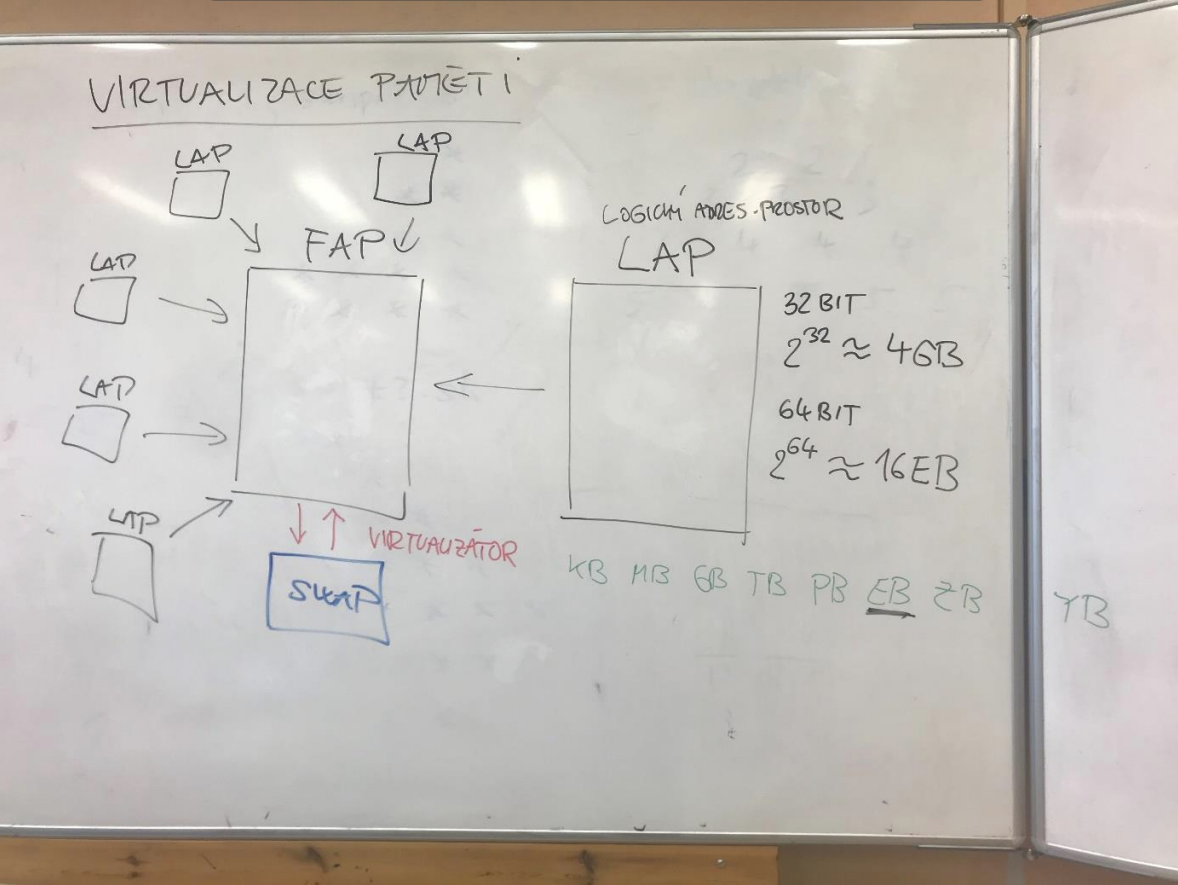 VIRTUALIZACE PAMĚTI
LAP
LAP
LAP
LAP
LAP
FAP
VIRTUALIZÁTOR
SWAP
LOGICKÝ ADRES. PROSTOR
LAP
32 BIT
2³² ≈ 4GB
64 BIT
2⁶⁴ ≈ 16EB
KB MB GB TB PB EB ZB YB